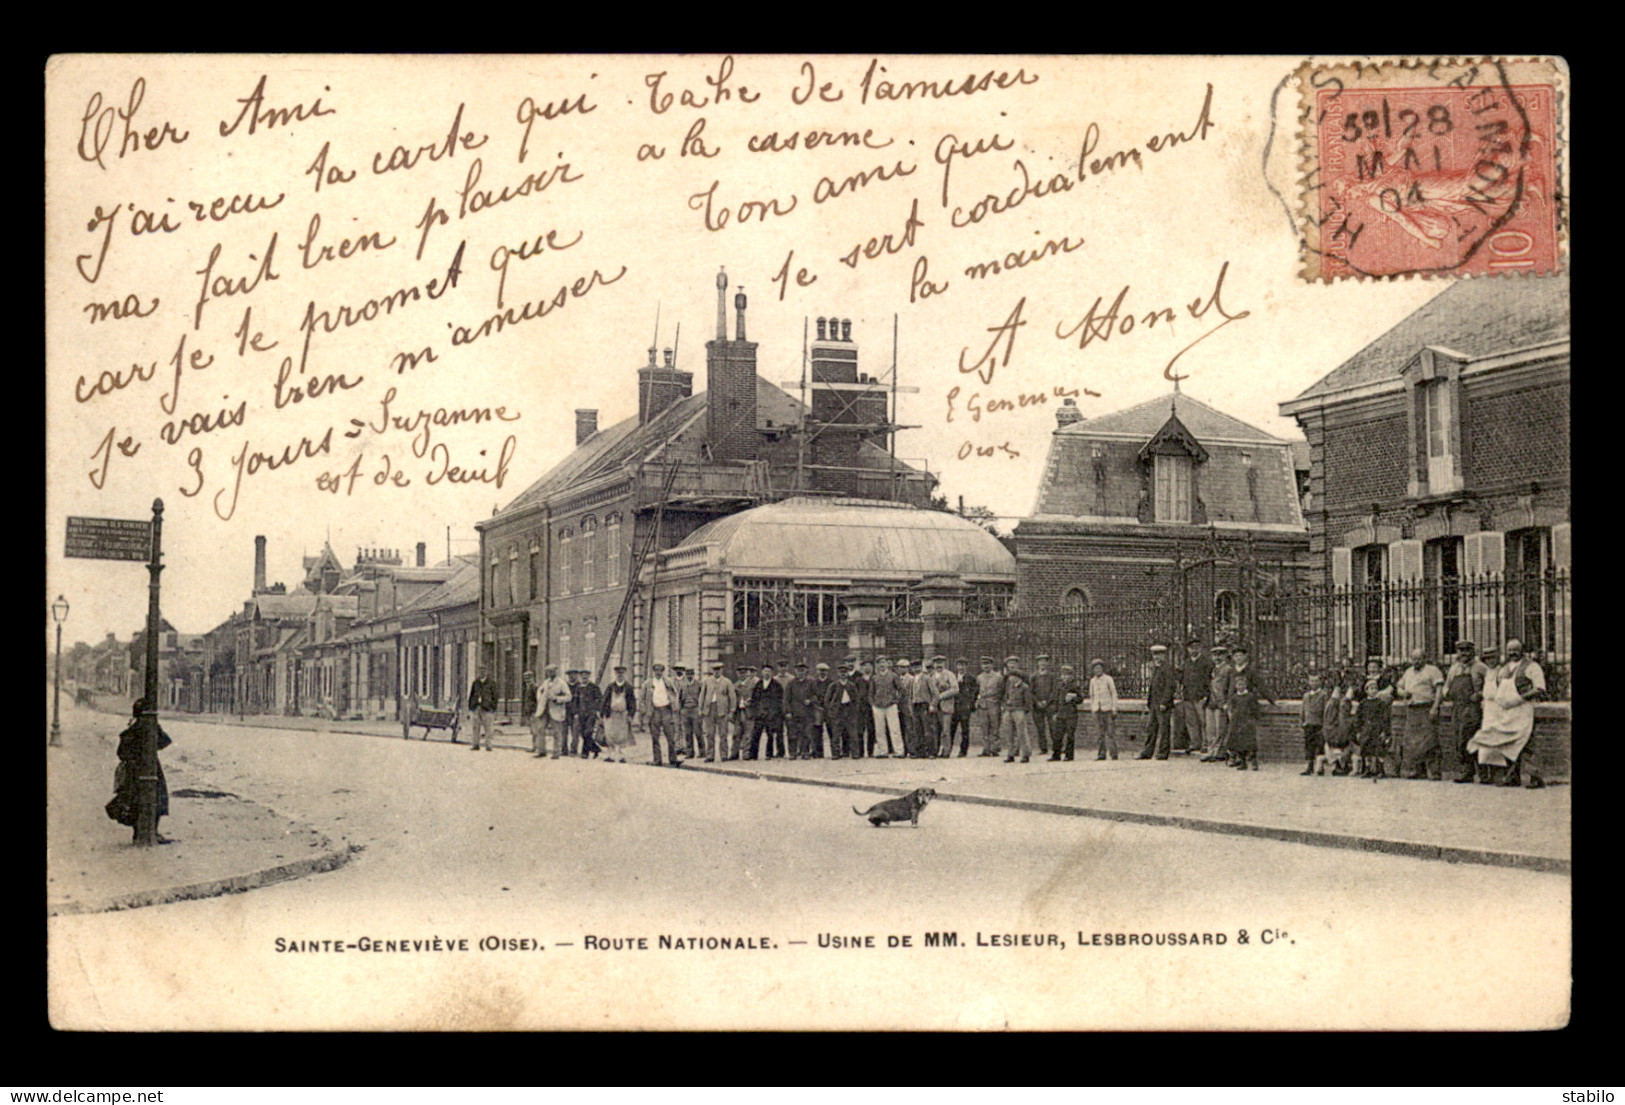 Cher Ami
J'ai recu ta carte qui
ma fait bien plaisir
car je te promet que
je vais bien m'amuser
3 jours = Suzanne
est de deuil
Tahe de t'amusser
a la caserne
Ton ami qui
te sert cordialement
la main
A Honel
Oise
28
MAI
04
10
SAINTE-GENEVIÈVE (OISE). — ROUTE NATIONALE. — USINE DE MM. LESIEUR, LESBROUSSARD & Cie.
delcampe.net
stabilo